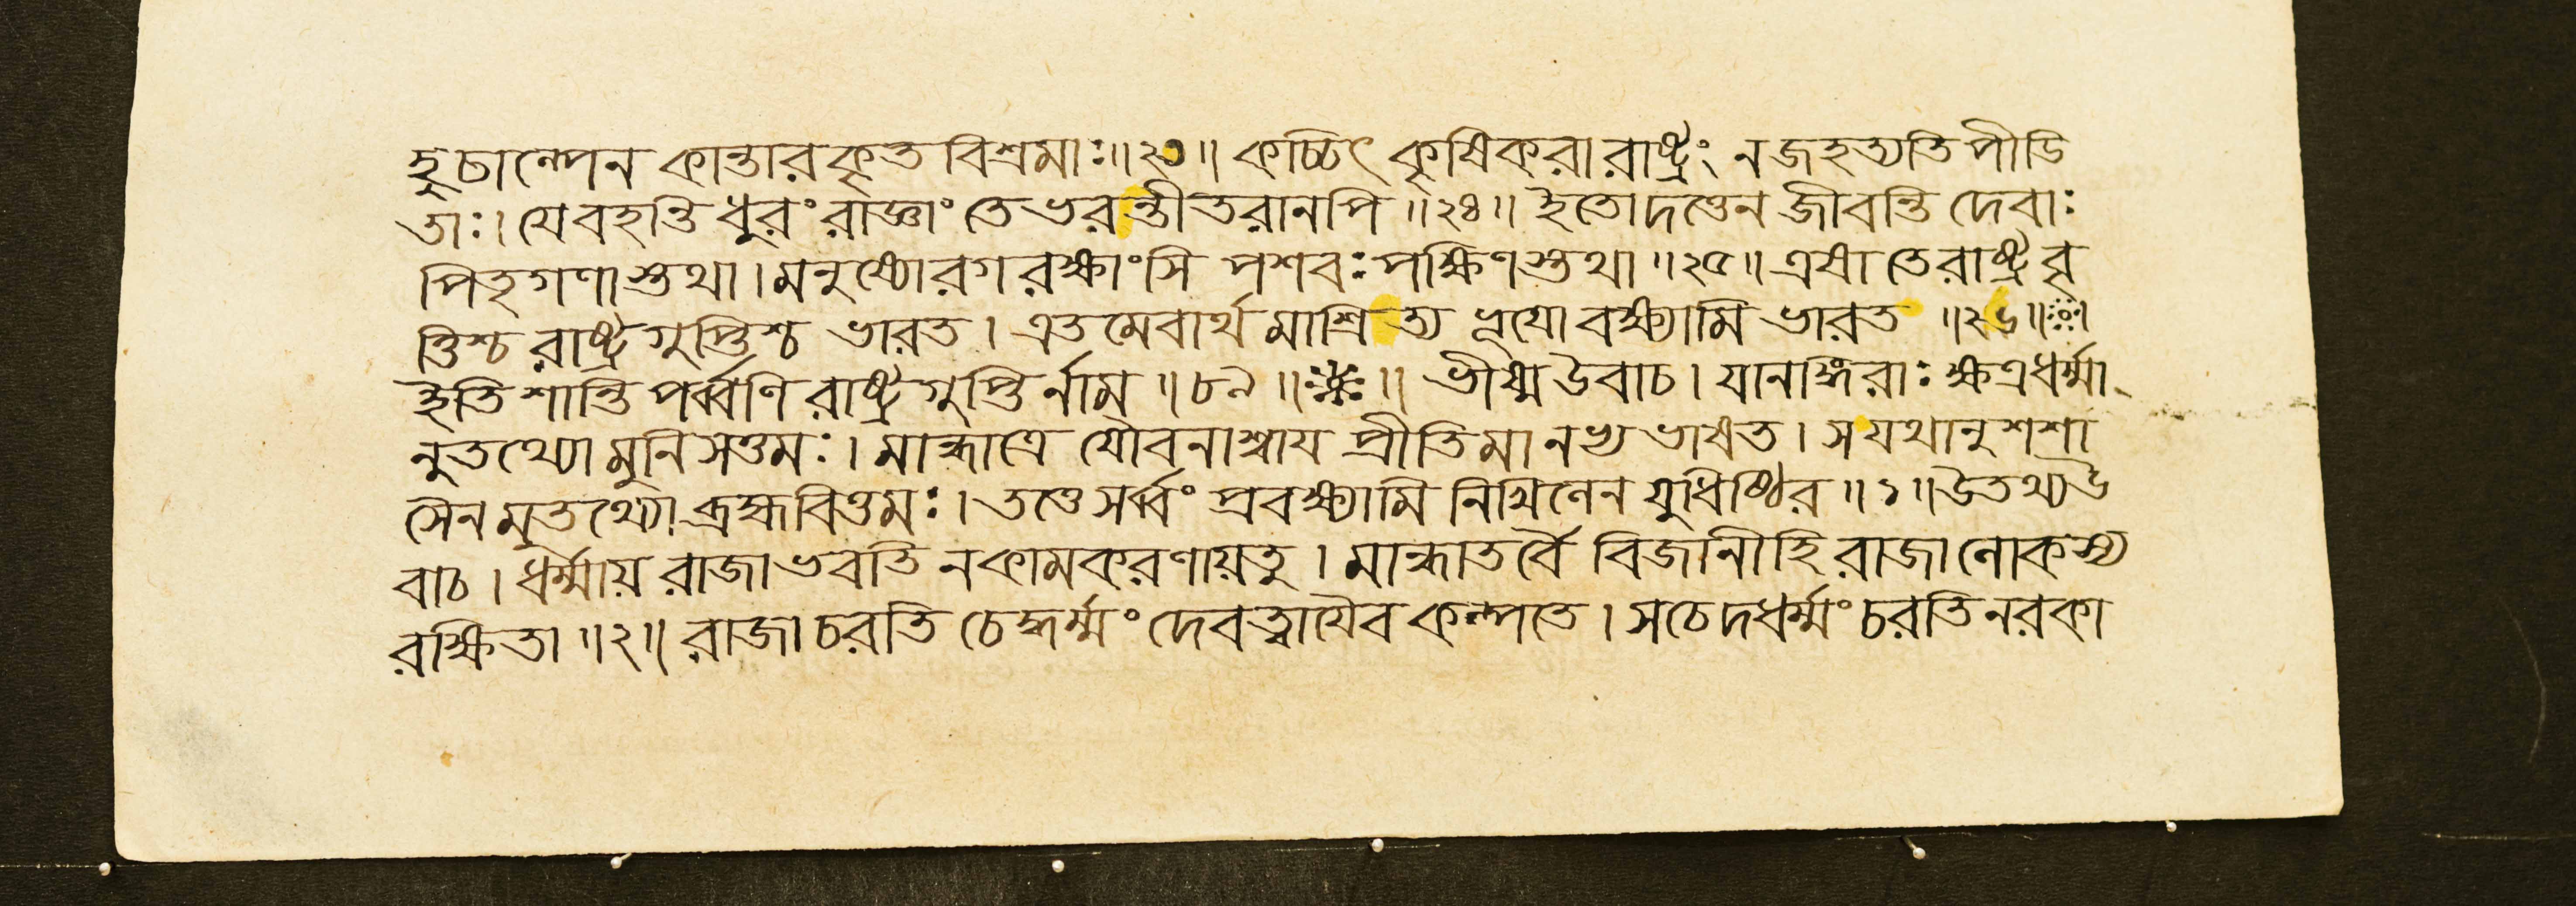 হুচাল্পেন কান্তারকৃতবিশ্রমাঃ॥২৩॥ কচ্চিৎ কৃষিকরারাষ্ট্রং নজহত্যতিপীডি
তাঃ। যেবহন্তি ধুরংরাজ্ঞাং তেভরন্তীতরানপি ॥২৪॥ ইতোদত্তেন জীবন্তি দেবাঃ
পিতৃগণাস্তথা। মনুষ্যোরগরক্ষাংসি পশবঃপক্ষিণস্তথা ॥২৫॥ এষা তেরাষ্ট্রবৃ
ত্তিশ্চ রাষ্ট্রগুপ্তিশ্চ ভারত। এতমেবার্থমাশ্রিত্য ভূযোবক্ষ্যামি ভারত ॥২৬॥
ইতি শান্তিপর্ব্বণি রাষ্ট্রগুপ্তির্নাম ॥৮৯॥ ভীষ্মউবাচ। যানঙ্গিরাঃ ক্ষত্রধর্ম্মা
নুতথ্যোমুনিসত্তমঃ। মান্ধাত্রে যৌবনাশ্বায প্রীতিমানভ্যভাষত। সযথানুশশা
সৈনমুতথ্যোব্রহ্মবিত্তমঃ। তত্তেসর্ব্বং প্রবক্ষ্যামি নিখিলেন যুধিষ্ঠির ॥১॥উতথ্যউ
বাচ। ধর্ম্মায় রাজাভবতি নকামকরণায়তু। মান্ধাতর্বৈ বিজানীহি রাজালোকস্য
রক্ষিতা ॥২॥ রাজাচরতি চেদ্ধর্ম্মং দেবত্বাযৈব কল্পতে। সচেদধর্ম্মংচরতি নরকা